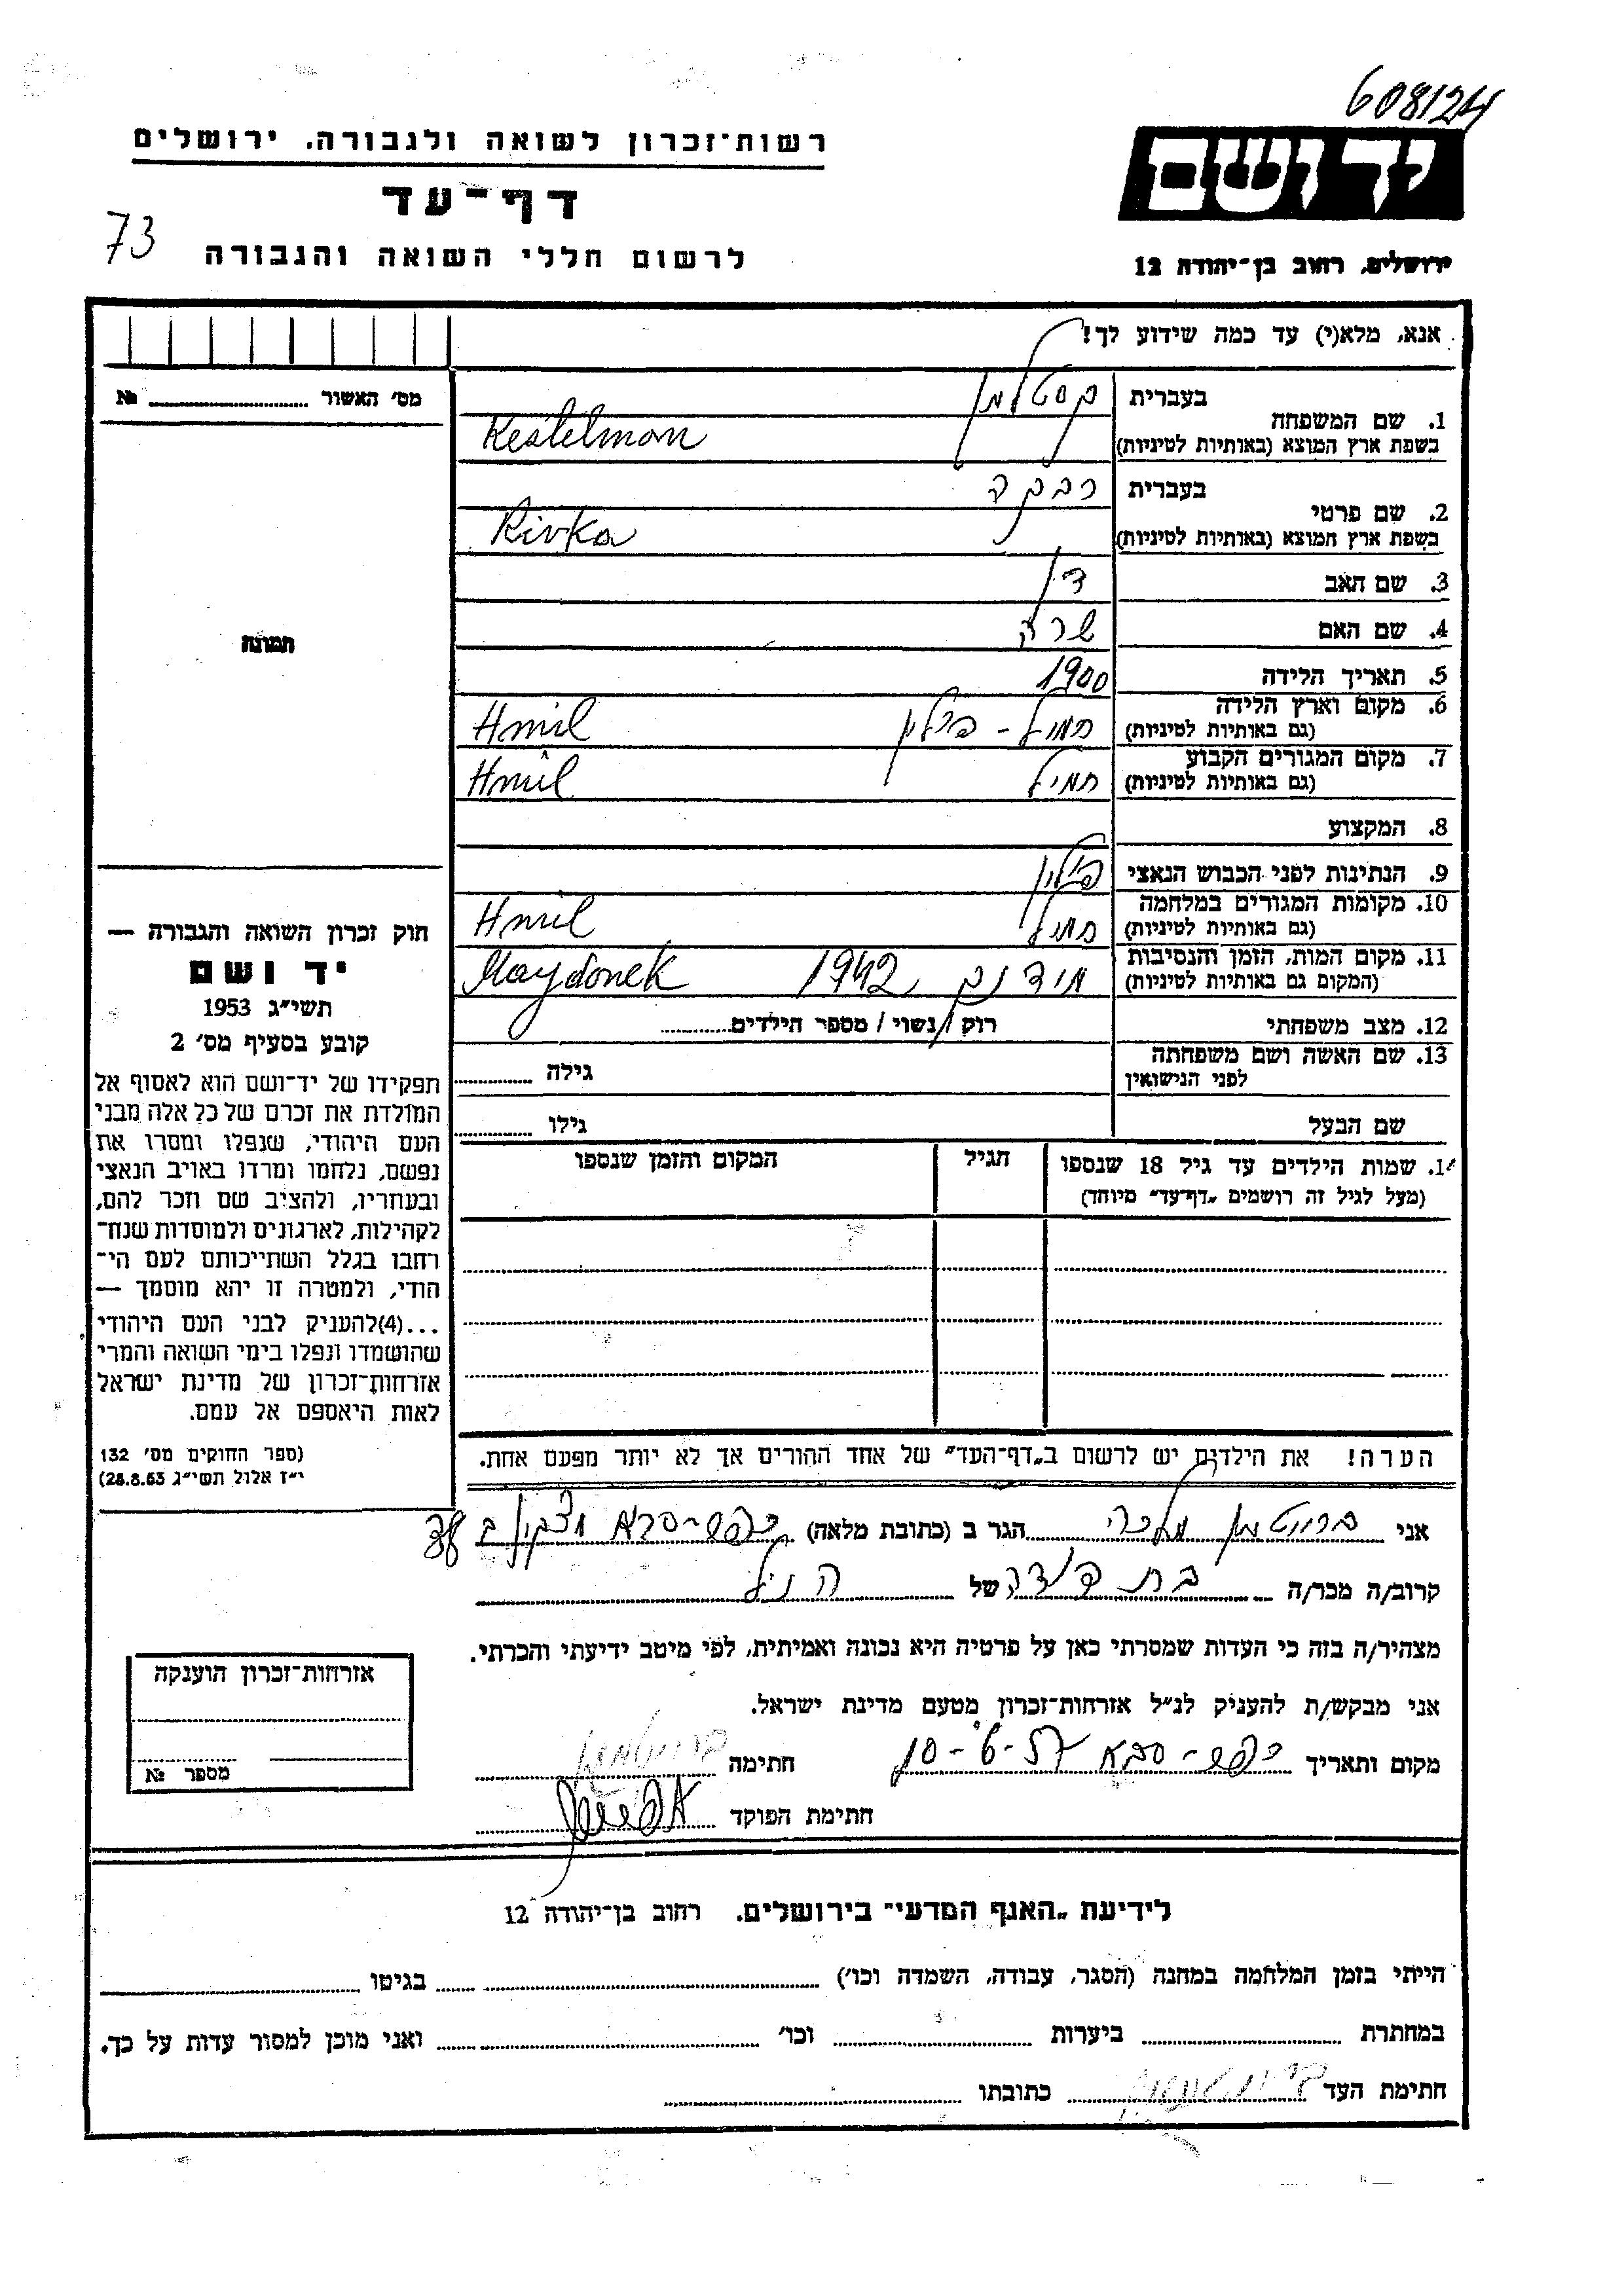 608124
רשות־זכרון לשואה ולגבורה, ירושלים
יד ושם
דף־עד
73
לרשום חללי השואה והגבורה
ירושלים, רחוב בן־יהודה 12
אנא, מלא(י) עד כמה שידוע לך!
מס׳ האשור ... №
בעברית קסטלמן
1. שם המשפחה
בשפת ארץ המוצא (באותיות לטיניות) Kestelman
בעברית רבקה
2. שם פרטי
בשפת ארץ המוצא (באותיות לטיניות) Rivka
3. שם האב
4. שם האם שרה
5. תאריך הלידה 1900
6. מקום וארץ הלידה חמיל - פולין Hmil
(גם באותיות לטיניות)
7. מקום המגורים הקבוע חמיל Hmil
(גם באותיות לטיניות)
תמונה
8. המקצוע
9. הנתינות לפני הכבוש הנאצי פולין
10. מקומות המגורים במלחמה חמיל Hmil
(גם באותיות לטיניות)
11. מקום המות, הזמן והנסיבות מידנק 1942 Maydonek
(המקום גם באותיות לטיניות)
12. מצב משפחתי רוק / נשוי / מספר הילדים
13. שם האשה ושם משפחתה
לפני הנישואין גילה
שם הבעל גילו
14. שמות הילדים עד גיל 18 שנספו הגיל המקום והזמן שנספו
(מעל לגיל זה רושמים „דף־עד” מיוחד)
חוק זכרון השואה והגבורה —
יד ושם
תשי״ג 1953
קובע בסעיף מס׳ 2
תפקידו של יד־ושם הוא לאסוף אל
המולדת את זכרם של כל אלה מבני
העם היהודי, שנפלו ומסרו את
נפשם, נלחמו ומרדו באויב הנאצי
ובעוזריו, ולהציב שם וזכר להם,
לקהילות, לארגונים ולמוסדות שנח־
רבו בגלל השתייכותם לעם הי־
הודי, ולמטרה זו יהא מוסמך —
...(4) להעניק לבני העם היהודי
שהושמדו ונפלו בימי השואה והמרי
אזרחות־זכרון של מדינת ישראל
לאות היאספם אל עמם.
(ספר החוקים מס׳ 132
י״ז אלול תשי״ג 28.8.53)
הערה! את הילדים יש לרשום ב„דף־העד” של אחד ההורים אך לא יותר מפעם אחת.
אני מלכה הגר ב (כתובת מלאה) כפר-סבא
קרוב/ה מכר/ה בת דודה של הנ״ל
מצהיר/ה בזה כי העדות שמסרתי כאן על פרטיה היא נכונה ואמיתית, לפי מיטב ידיעתי והכרתי.
אני מבקש/ת להעניק לנ״ל אזרחות־זכרון מטעם מדינת ישראל.
מקום ותאריך כפר-סבא 10-6-57 חתימה
חתימת הפוקד
אזרחות־זכרון הוענקה
מספר №
לידיעת „האגף המדעי” בירושלים, רחוב בן־יהודה 12
הייתי בזמן המלחמה במחנה (הסגר, עבודה, השמדה וכו׳) בגיטו
במחתרת ביערות וכו׳ ואני מוכן למסור עדות על כך.
חתימת העד כתובתו